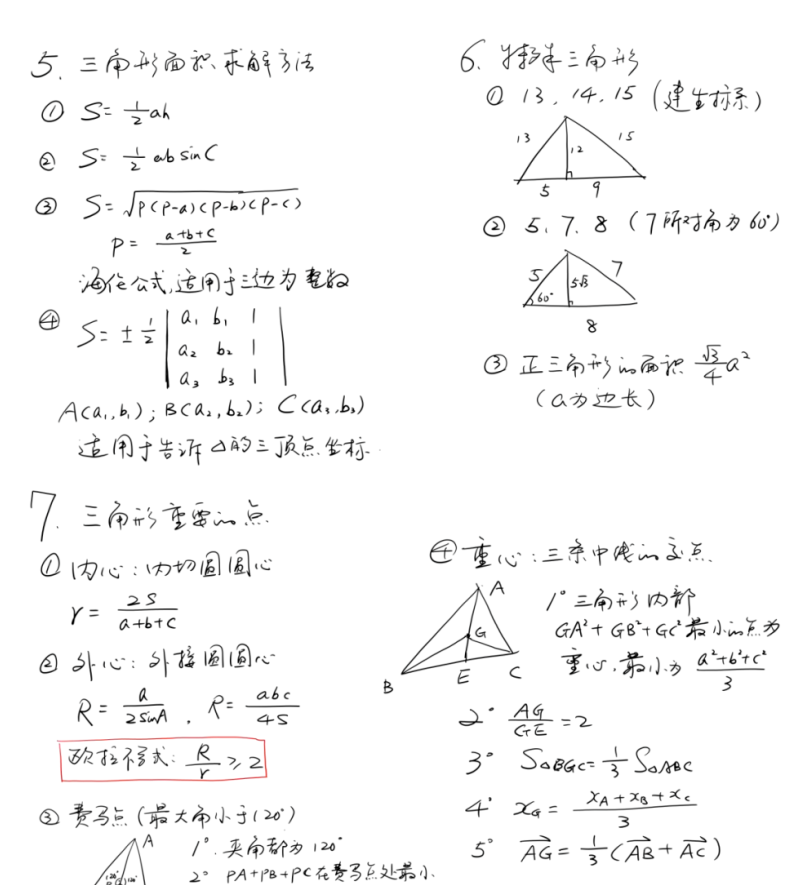 5. 三角形面积求解方法
① S= 1/2 ah
② S= 1/2 ab sinC
③ S=√P(P-a)(P-b)(P-c)
P= a+b+c/2
海伦公式,适用于三边为整数
④ S= ± 1/2 | a₁ b₁ 1 |
| a₂ b₂ 1 |
| a₃ b₃ 1 |
A(a₁,b₁); B(a₂,b₂); C(a₃,b₃)
适用于告诉△的三顶点坐标.
6. 特殊三角形
① 13, 14, 15 (建坐标系)
13 12 15
5 9
② 5, 7, 8 (7所对角为60°)
5 5√3 7
60°
8
③ 正三角形的面积 √3/4 a²
(a为边长)
7. 三角形重要的点
① 内心:内切圆圆心
r= 2S/a+b+c
② 外心:外接圆圆心
R= a/2sinA , R= abc/4S
欧拉不等式: R/r ≥2
③ 费马点(最大角小于120°)
A
1°. 夹角都为120°
2° PA+PB+PC在费马点处最小.
120° 120°
④ 重心:三条中线的交点.
A
G
B E C
1° 三角形内部
GA²+GB²+GC²最小的点为
重心,最小为 a²+b²+c²/3
2° AG/GE =2
3° S△BGC= 1/3 S△ABC
4° x_G= x_A+x_B+x_C/3
5° AG→= 1/3 (AB→+AC→)